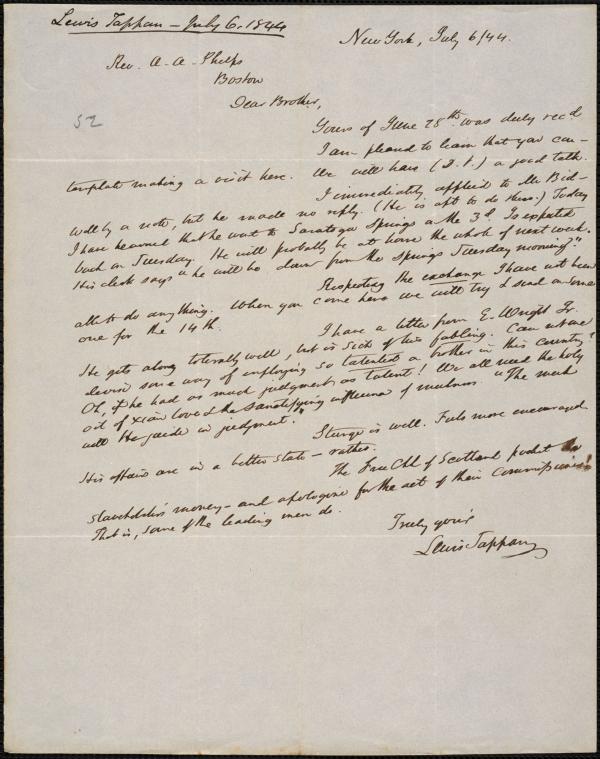 Lewis Tappan - July 6. 1844
New York, July 6/44.
Rev. A. A. Phelps
Boston
52
Dear Brother,
Yours of June 28th was duly rec'd
I am pleased to learn that you con-
template making a visit here. We will have (D. V.) a good talk.
I immediately applied to Mr Bid-
well by a note, but he made no reply. (He is apt to do thus.) Today
I have learned that he went to Saratoga Springs on the 3d. Is expected
back on Tuesday. He will probably be at home the whole of next week.
His clerk says "he will be down from the Springs Tuesday morning".
Respecting the exchange I have not been
able to do anything. When you come here we will try & send on some
one for the 14th.
I have a letter from E. Wright Jr.
He gets along tolerably well, but is sick of his fabling. Can not we
devise some way of employing so talented a brother in this country?
Oh, if he had as much judgment as talent! We all need the holy
oil of xian love & the sanctifying influence of meekness. "The meek
will He guide in judgment."
Sturge is well. Feels more encouraged.
His affairs are in a better state - rather.
The Free Chh of Scotland pocket the
slaveholders money - and apologize for the act of their Commissioners!
That is, some of the leading men do.
Truly yours
Lewis Tappan